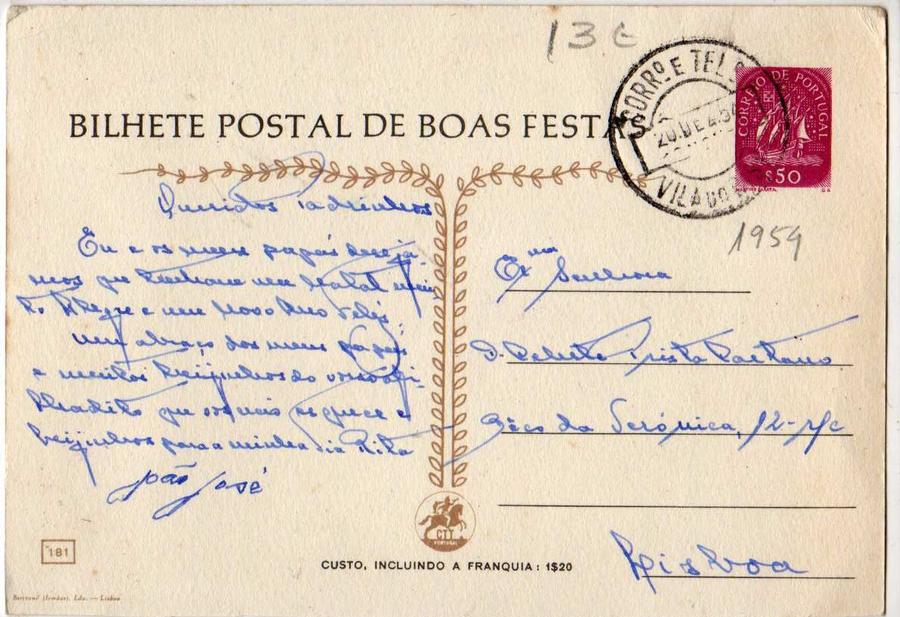 13 €
BILHETE POSTAL DE BOAS FESTAS
CORRO. E TELG
20.DEZ.54
VILA DO
CORREIO DE PORTUGAL
$50
1954
Queridos Padrinhos
Eu e os meus papás deseja-
mos que tenham um Natal mui-
to Alegre e um Novo Ano Feliz.
Um abraço dos meus papás
e muitos beijinhos do vosso afi-
lhadito que os não esquece e
beijinhos para a minha tia Rita
João José
Exma Senhora
D. Prista Caetano
Bêco da Verónica, 12-r/c
Lisboa
CTT
PORTUGAL
CUSTO, INCLUINDO A FRANQUIA: 1$20
181
Bertrand (Irmãos), Lda. — Lisboa